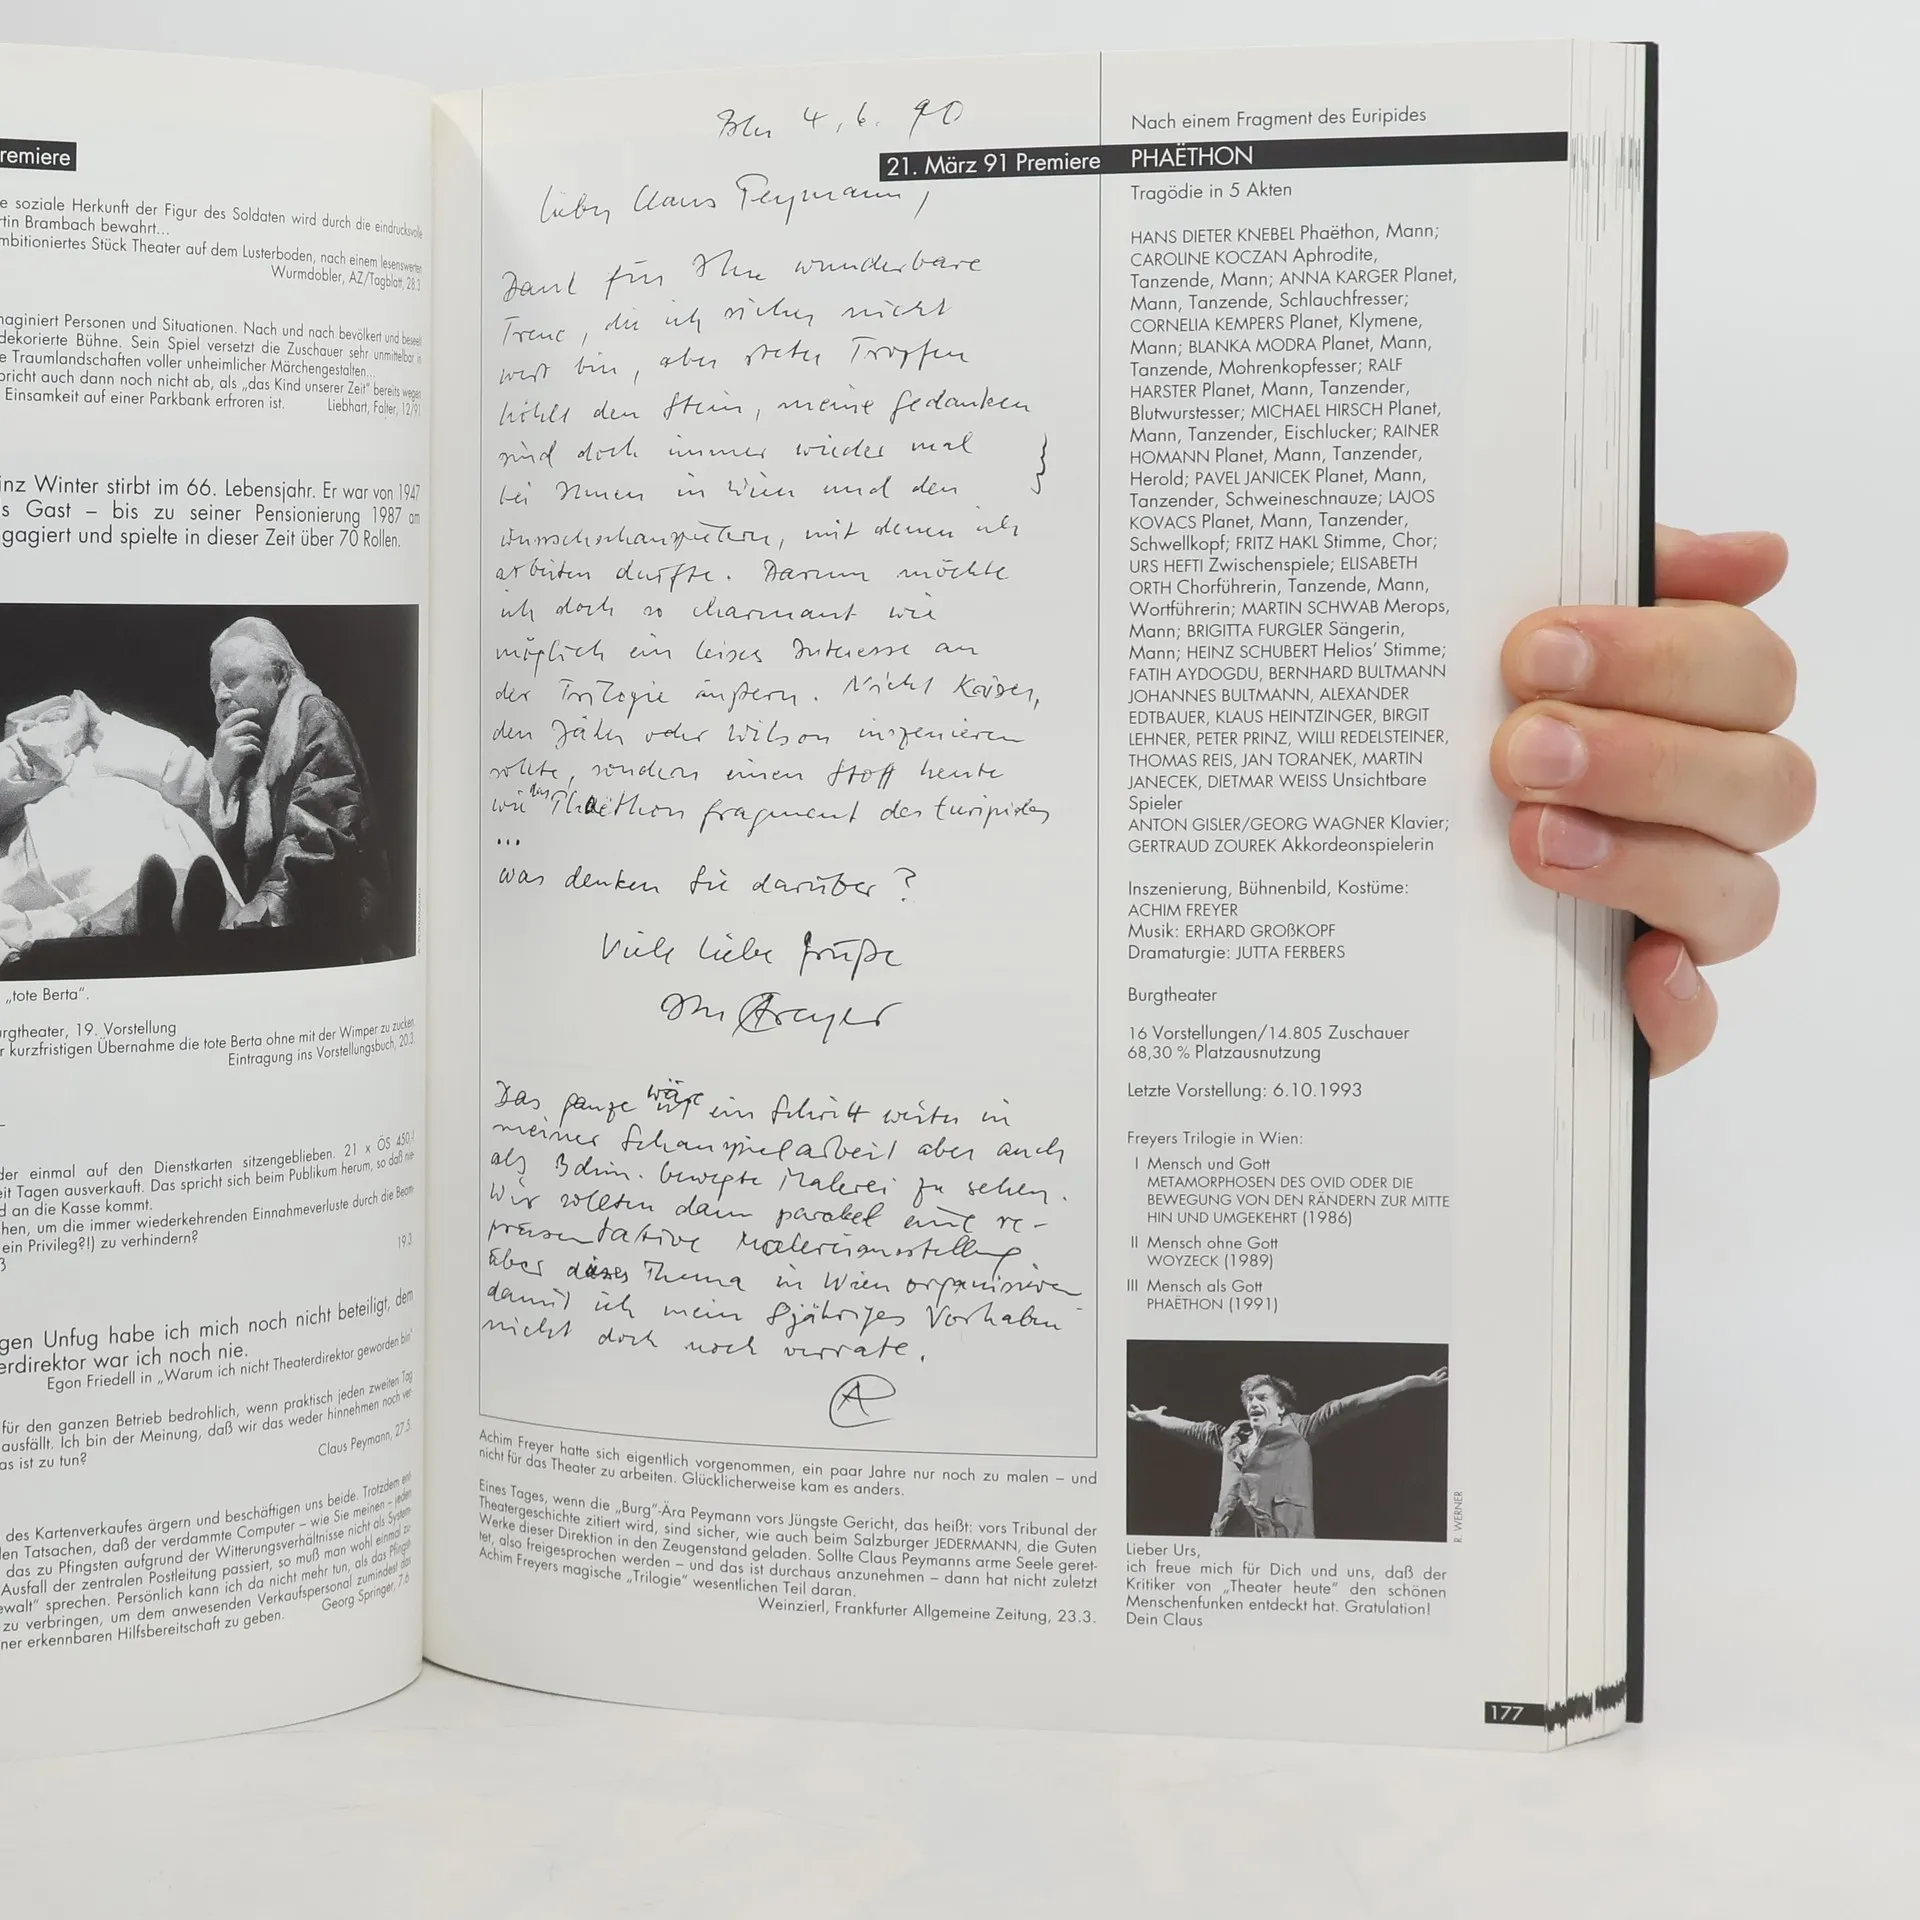 remiere
e soziale Herkunft der Figur des Soldaten wird durch die eindrucksvolle
rtin Brambach bewahrt...
mbitioniertes Stück Theater auf dem Lusterboden, nach einem lesenswerten
Wurmdobler, AZ/Tagblatt, 28.3.
naginiert Personen und Situationen. Nach und nach bevölkert und beseelt
dekorierte Bühne. Sein Spiel versetzt die Zuschauer sehr unmittelbar in
e Traumlandschaften voller unheimlicher Märchengestalten...
pricht auch dann noch nicht ab, als „das Kind unserer Zeit" bereits wegen
Einsamkeit auf einer Parkbank erfroren ist. Liebhart, Falter, 12/91
inz Winter stirbt im 66. Lebensjahr. Er war von 1947
s Gast – bis zu seiner Pensionierung 1987 am
gagiert und spielte in dieser Zeit über 70 Rollen.
„tote Berta".
urgtheater, 19. Vorstellung
r kurzfristigen Übernahme die tote Berta ohne mit der Wimper zu zucken.
Eintragung ins Vorstellungsbuch, 20.3.
der einmal auf den Dienstkarten sitzengeblieben. 21 x ÖS 450,-!
eit Tagen ausverkauft. Das spricht sich beim Publikum herum, so daß nie-
d an die Kasse kommt.
hen, um die immer wiederkehrenden Einnahmeverluste durch die Beam-
ein Privileg?!) zu verhindern?
19.3.
gen Unfug habe ich mich noch nicht beteiligt, dem
erdirektor war ich noch nie.
Egon Friedell in „Warum ich nicht Theaterdirektor geworden bin"
für den ganzen Betrieb bedrohlich, wenn praktisch jeden zweiten Tag
ausfällt. Ich bin der Meinung, daß wir das weder hinnehmen noch ver-
as ist zu tun?
Claus Peymann, 27.5.
des Kartenverkaufes ärgern und beschäftigen uns beide. Trotzdem ent-
len Tatsachen, daß der verdammte Computer – wie Sie meinen – jeden
das zu Pfingsten aufgrund der Witterungsverhältnisse nicht als System-
Ausfall der zentralen Postleitung passiert, so muß man wohl einmal zu
ewalt" sprechen. Persönlich kann ich da nicht mehr tun, als das Pfingst-
zu verbringen, um dem anwesenden Verkaufspersonal zumindest das
ner erkennbaren Hilfsbereitschaft zu geben. Georg Springer, 7.6.
Bln 4.6.90
21. März 91 Premiere
lieber Claus Peymann,
Dank für Ihre wunderbare
Treue, die ich sicher nicht
wert bin, aber steter Tropfen
höhlt den Stein, meine Gedanken
sind doch immer wieder mal
bei Ihnen in Wien und den
Wunschschauspielern, mit denen ich
arbeiten durfte. Darum möchte
ich doch so charmant wie
möglich ein leises Interesse an
der Trilogie äußern. Nicht Kaiser,
den Jäher oder Wilson inszenieren
sollte, sondern einen Stoff heute
wie das Phaëthonfragment des Euripides
...
was denken Sie darüber?
Viele liebe Grüße
Ihr AFreyer
Das ganze wäre ein Schritt weiter in
meiner Schauspielarbeit aber auch
als Bühn. bewegte Malerei zu sehen.
Wir sollten dann parallel eine re-
präsentative Malereiausstellung
über dieses Thema in Wien organisieren
damit ich mein 8jähriges Vorhaben
nicht doch noch verrate.
Achim Freyer hatte sich eigentlich vorgenommen, ein paar Jahre nur noch zu malen – und
nicht für das Theater zu arbeiten. Glücklicherweise kam es anders.
Eines Tages, wenn die „Burg"-Ära Peymann vors Jüngste Gericht, das heißt: vors Tribunal der
Theatergeschichte zitiert wird, sind sicher, wie auch beim Salzburger JEDERMANN, die Guten
Werke dieser Direktion in den Zeugenstand geladen. Sollte Claus Peymanns arme Seele geret-
tet, also freigesprochen werden – und das ist durchaus anzunehmen – dann hat nicht zuletzt
Achim Freyers magische „Trilogie" wesentlichen Teil daran.
Weinzierl, Frankfurter Allgemeine Zeitung, 23.3.
Nach einem Fragment des Euripides
PHAËTHON
Tragödie in 5 Akten
HANS DIETER KNEBEL Phaëthon, Mann;
CAROLINE KOCZAN Aphrodite,
Tanzende, Mann; ANNA KARGER Planet,
Mann, Tanzende, Schlauchfresser;
CORNELIA KEMPERS Planet, Klymene,
Mann; BLANKA MODRA Planet, Mann,
Tanzende, Mohrenkopfesser; RALF
HARSTER Planet, Mann, Tanzender,
Blutwurstesser; MICHAEL HIRSCH Planet,
Mann, Tanzender, Eischlucker; RAINER
HOMANN Planet, Mann, Tanzender,
Herold; PAVEL JANICEK Planet, Mann,
Tanzender, Schweineschnauze; LAJOS
KOVACS Planet, Mann, Tanzender,
Schwellkopf; FRITZ HAKL Stimme, Chor;
URS HEFTI Zwischenspiele; ELISABETH
ORTH Chorführerin, Tanzende, Mann,
Wortführerin; MARTIN SCHWAB Merops,
Mann; BRIGITTA FURGLER Sängerin,
Mann; HEINZ SCHUBERT Helios' Stimme;
FATIH AYDOGDU, BERNHARD BULTMANN
JOHANNES BULTMANN, ALEXANDER
EDTBAUER, KLAUS HEINTZINGER, BIRGIT
LEHNER, PETER PRINZ, WILLI REDELSTEINER,
THOMAS REIS, JAN TORANEK, MARTIN
JANECEK, DIETMAR WEISS Unsichtbare
Spieler
ANTON GISLER/GEORG WAGNER Klavier;
GERTRAUD ZOUREK Akkordeonspielerin
Inszenierung, Bühnenbild, Kostüme:
ACHIM FREYER
Musik: ERHARD GROßKOPF
Dramaturgie: JUTTA FERBERS
Burgtheater
16 Vorstellungen/14.805 Zuschauer
68,30 % Platzausnutzung
Letzte Vorstellung: 6.10.1993
Freyers Trilogie in Wien:
I Mensch und Gott
METAMORPHOSEN DES OVID ODER DIE
BEWEGUNG VON DEN RÄNDERN ZUR MITTE
HIN UND UMGEKEHRT (1986)
II Mensch ohne Gott
WOYZECK (1989)
III Mensch als Gott
PHAËTHON (1991)
R. WERNER
Lieber Urs,
ich freue mich für Dich und uns, daß der
Kritiker von „Theater heute" den schönen
Menschenfunken entdeckt hat. Gratulation!
Dein Claus
177